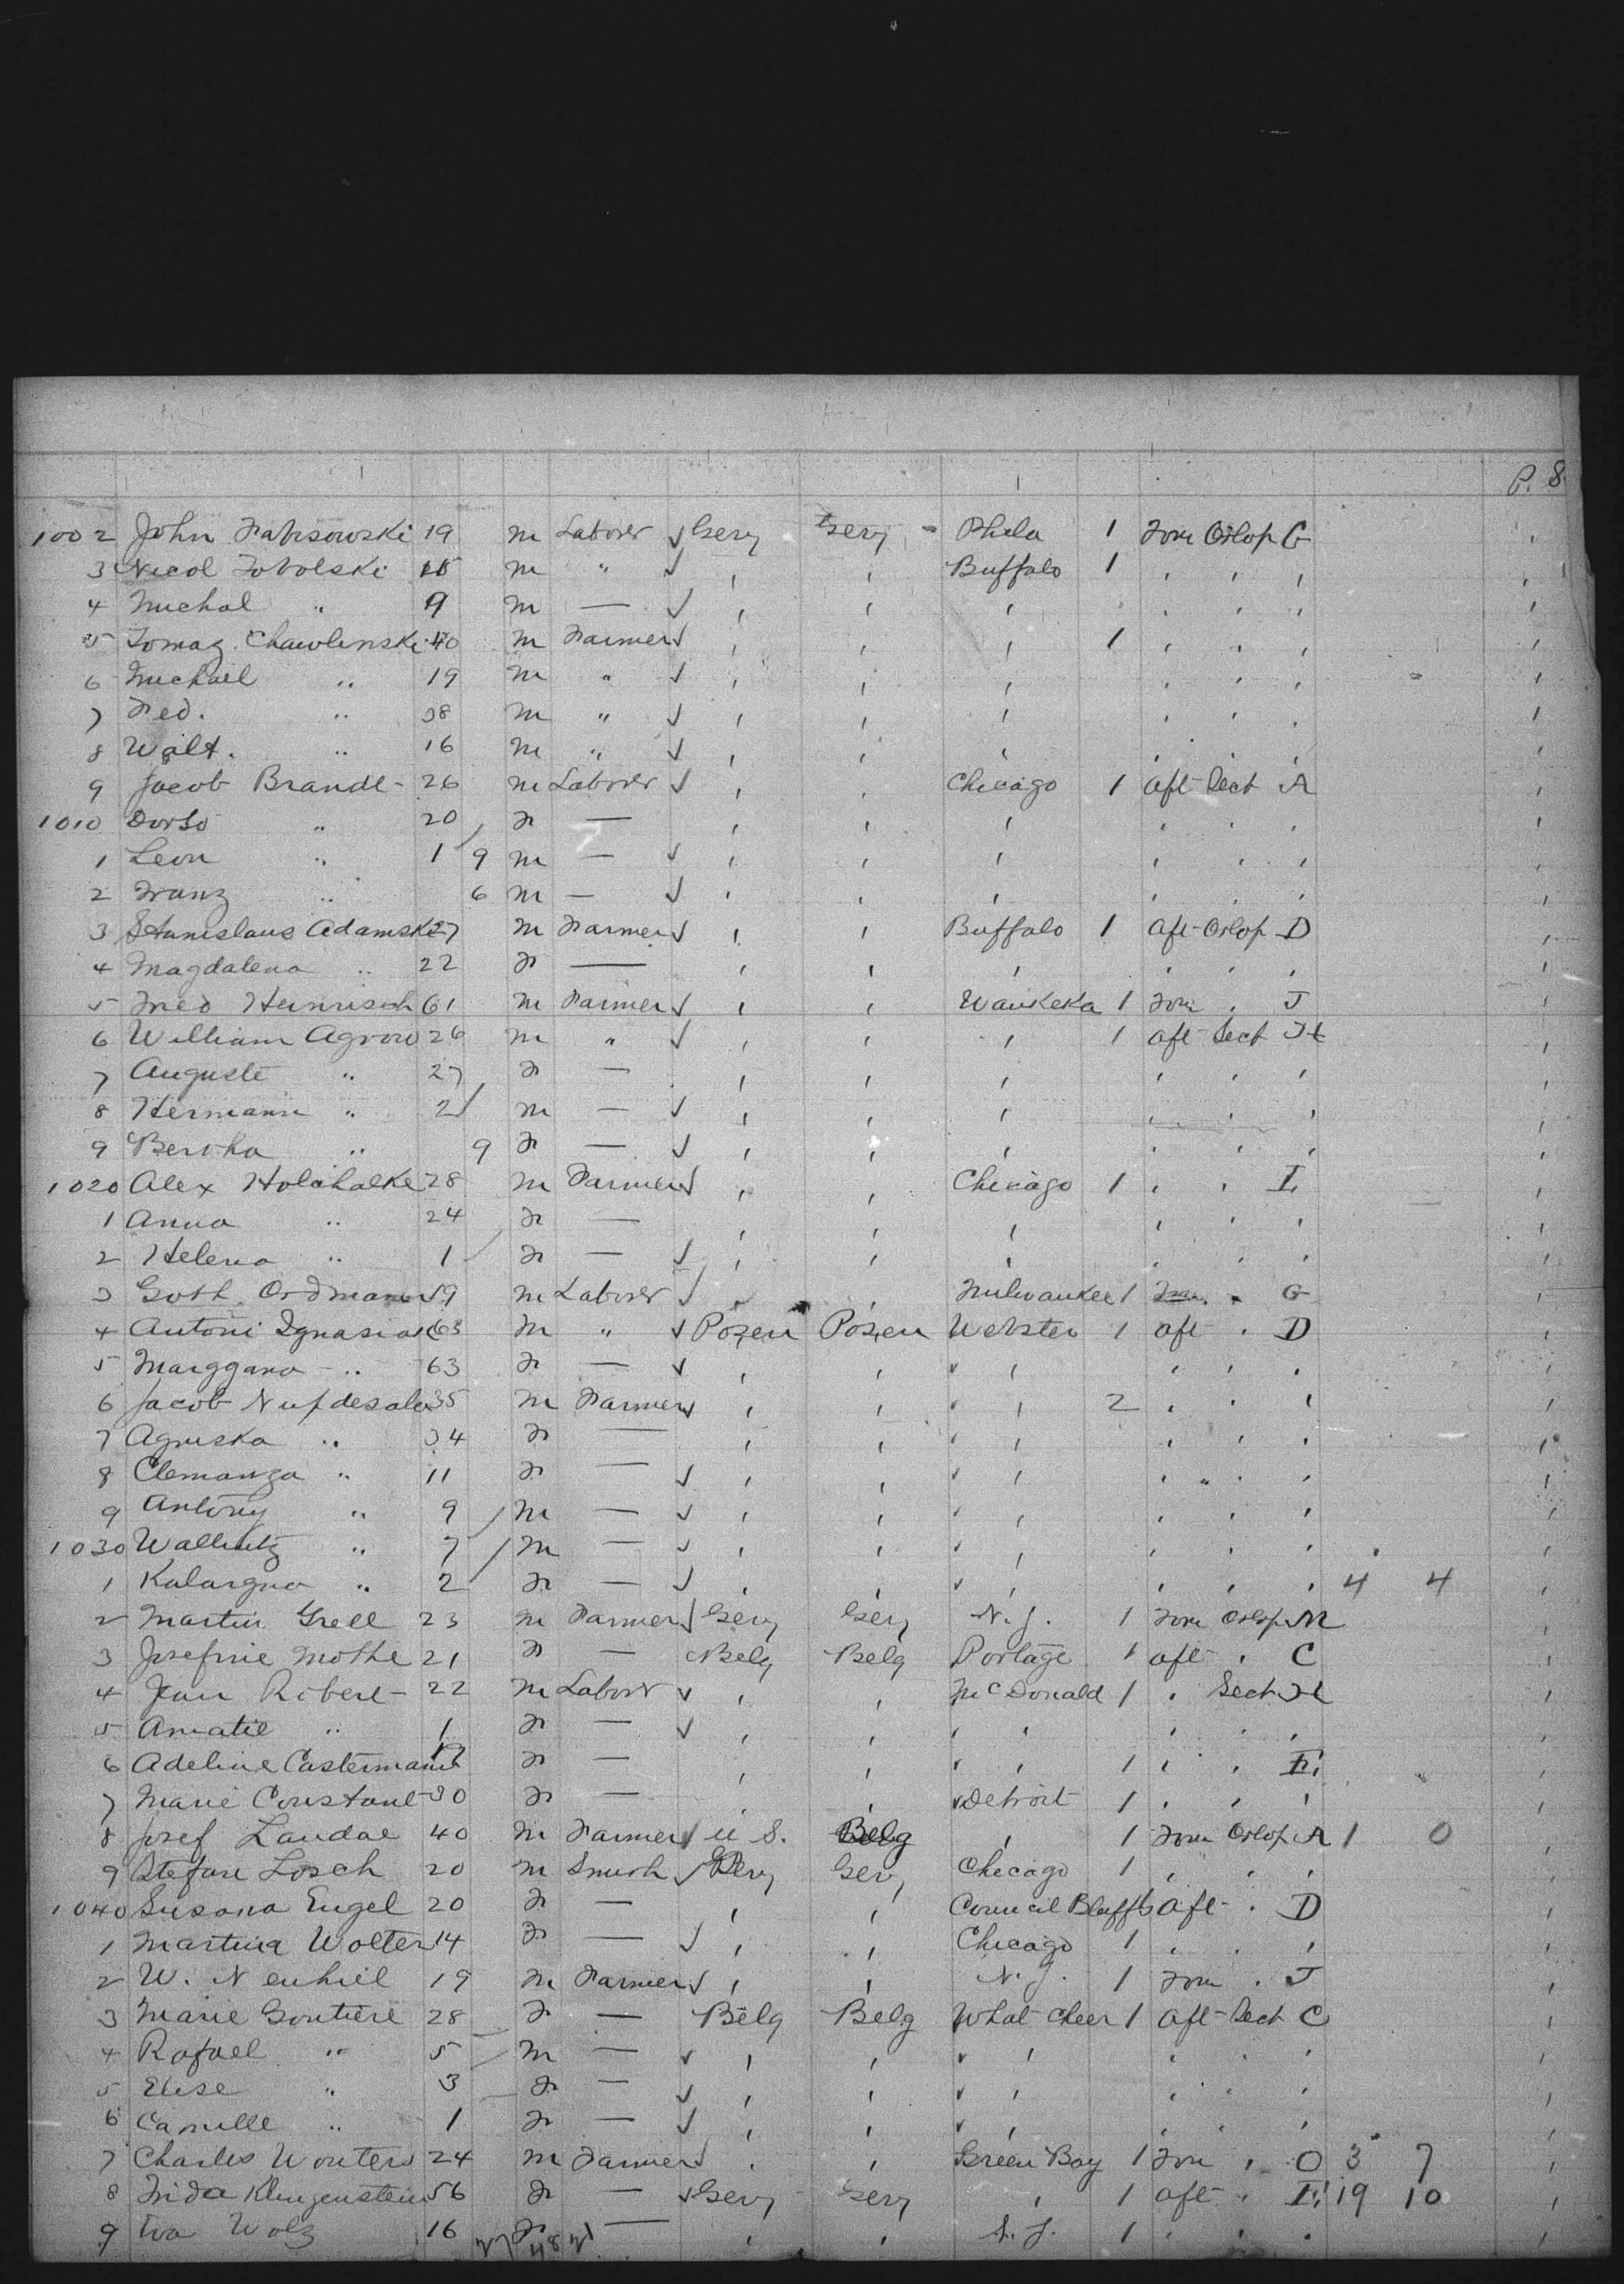 P. 8
1002 John Fabisowski 19 m Laborer √ Gery Gery Phila 1 Forw Orlop G
3 Nicol Tobolski 15 m " √ , , Buffalo 1 , , ,
4 Michal " 9 m — √ , , , , , ,
5 Tomaz. Chawlinski 40 m Farmer √ , , , 1 , , ,
6 Michael " 19 m " √ , , , , , ,
7 Fed. " 38 m " √ , , , , , ,
8 Walt. " 16 m " √ , , , , , ,
9 Jacob Brandt 26 m Laborer √ , , Chicago 1 aft Sect A
1010 " 20 F — , , , , , ,
1 Leon " 1 9 m — √ , , , , , ,
2 Franz " 6 m — √ , , , , , ,
3 Stanislaus Adamski 27 m Farmer √ , , Buffalo 1 aft Orlop D
4 Magdalena " 22 F — , , , , , ,
5 Fried Heinrisch 61 m Farmer √ , , Waukeka 1 Forw , J
6 William Agrow 26 m " √ , , , 1 aft Sect H
7 Auguste " 27 F — , , , , , ,
8 Hermann " 2 m — √ , , , , , ,
9 Bertha " 9 F — √ , , , , , ,
1020 Alex Holchalke 28 m Farmer √ , , Chicago 1 , , I
1 Anna " 24 F — , , , , , ,
2 Helena " 1 F — √ , , , , , ,
3 Goth. Ordmann 59 m Laborer √ , , Milwaukee 1 Forw " G
4 Antoni Ignasiak 63 m " √ Pozen Pozen Webster 1 aft , D
5 Marggana " 63 F — √ , , √ , , , ,
6 Jacob 35 m Farmer √ , , √ , 2 , , ,
7 Agniska " 34 F — , , √ , , , ,
8 Clemanza " 11 F — √ , , √ , , " , ,
9 Antony " 9 m — √ , , √ , , , ,
1030 " 7 m — √ , , √ , , , ,
1 " 2 F — √ , , √ , , , , 4 4
2 Martin Grell 23 m Farmer √ Gery Gery N. J. 1 Forw Orlop M
3 Josefine Mothe 21 F — Belg Belg Portage 1 aft , C
4 Jean Robert 22 m Labor √ , , McDonald 1 , Sect H
5 Amatie " 1 F — √ , , , , , , ,
6 Adeline Castermant 19 F — , , √ , 1 , , E
7 Marie Constant 30 F — , , √ Detroit 1 , , ,
8 Josef Landae 40 m Farmer √ U S. Belg , 1 Forw Orlop A 1 0
9 Stefan Losch 20 m Smith √ Gery Gery Chicago 1 , , ,
1040 Susana Engel 20 F — , , Council Bluffs aft , D
1 Martina Wolter 14 F — √ , , Chicago 1 , , ,
2 W. Neuhiel 19 m Farmer √ , , N. J. 1 Forw , J
3 Marie Goutiere 28 F — Belg Belg What Cheer 1 aft Sect C
4 Rafael " 5 m — √ , , √ , , , ,
5 Elise " 3 F — √ , , √ , , , ,
6 Camille " 1 F — √ , , √ , , , ,
7 Charles Wouters 24 m Farmer √ , , Green Bay 1 Forw , O 3 7
8 Frida Klingenstein 56 F — √ Gery Gery , 1 aft , E 19 10
9 Eva Wolz 16 F — , , 1 , , ,